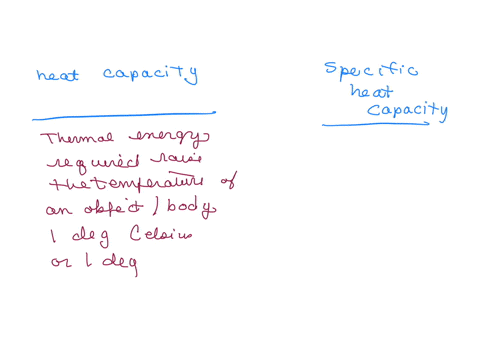 heat capacity
Specific
heat
capacity
Thermal energy
required raise
the temperature of
an object / body
1 deg Celsius
or 1 deg